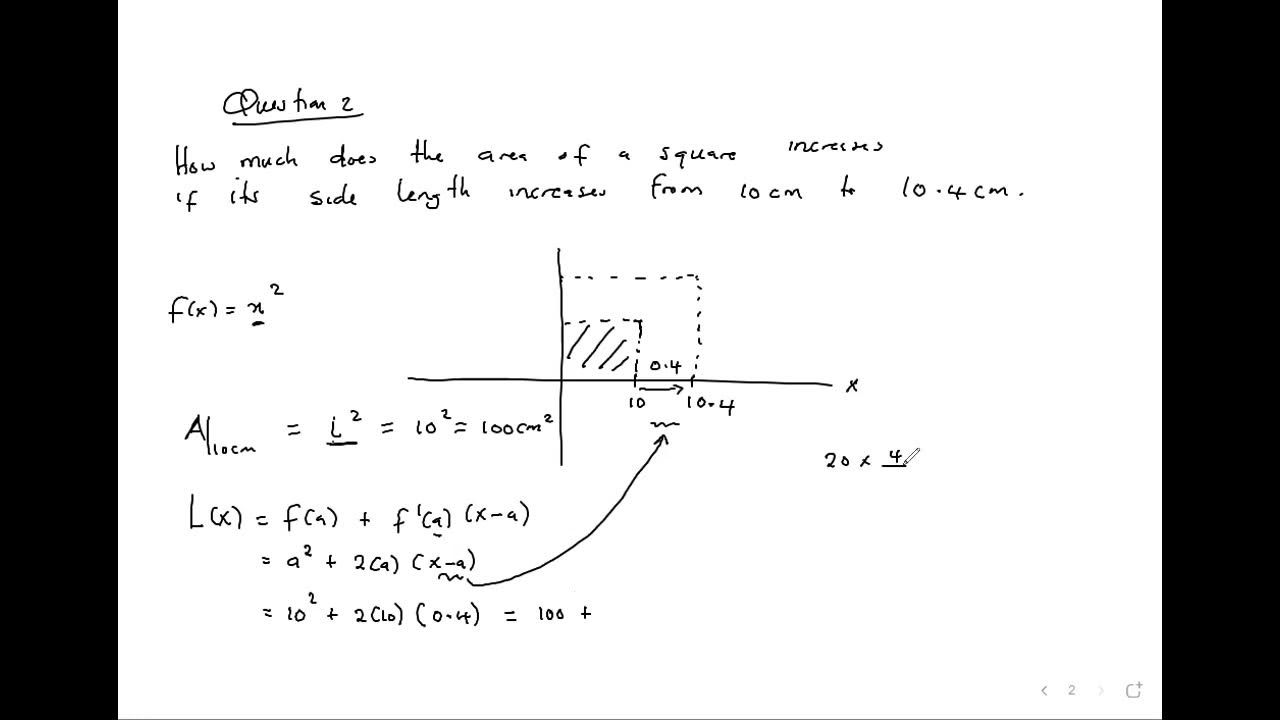 Question 2
How much does the area of a square increases
if its side length increases from 10cm to 10.4cm.
f(x) = x²
0.4
10 10.4 x
A|10cm = L² = 10² = 100cm²
20 x 4
L(x) = f(a) + f'(a) (x-a)
= a² + 2(a) (x-a)
= 10² + 2(10) (0.4) = 100 +
2